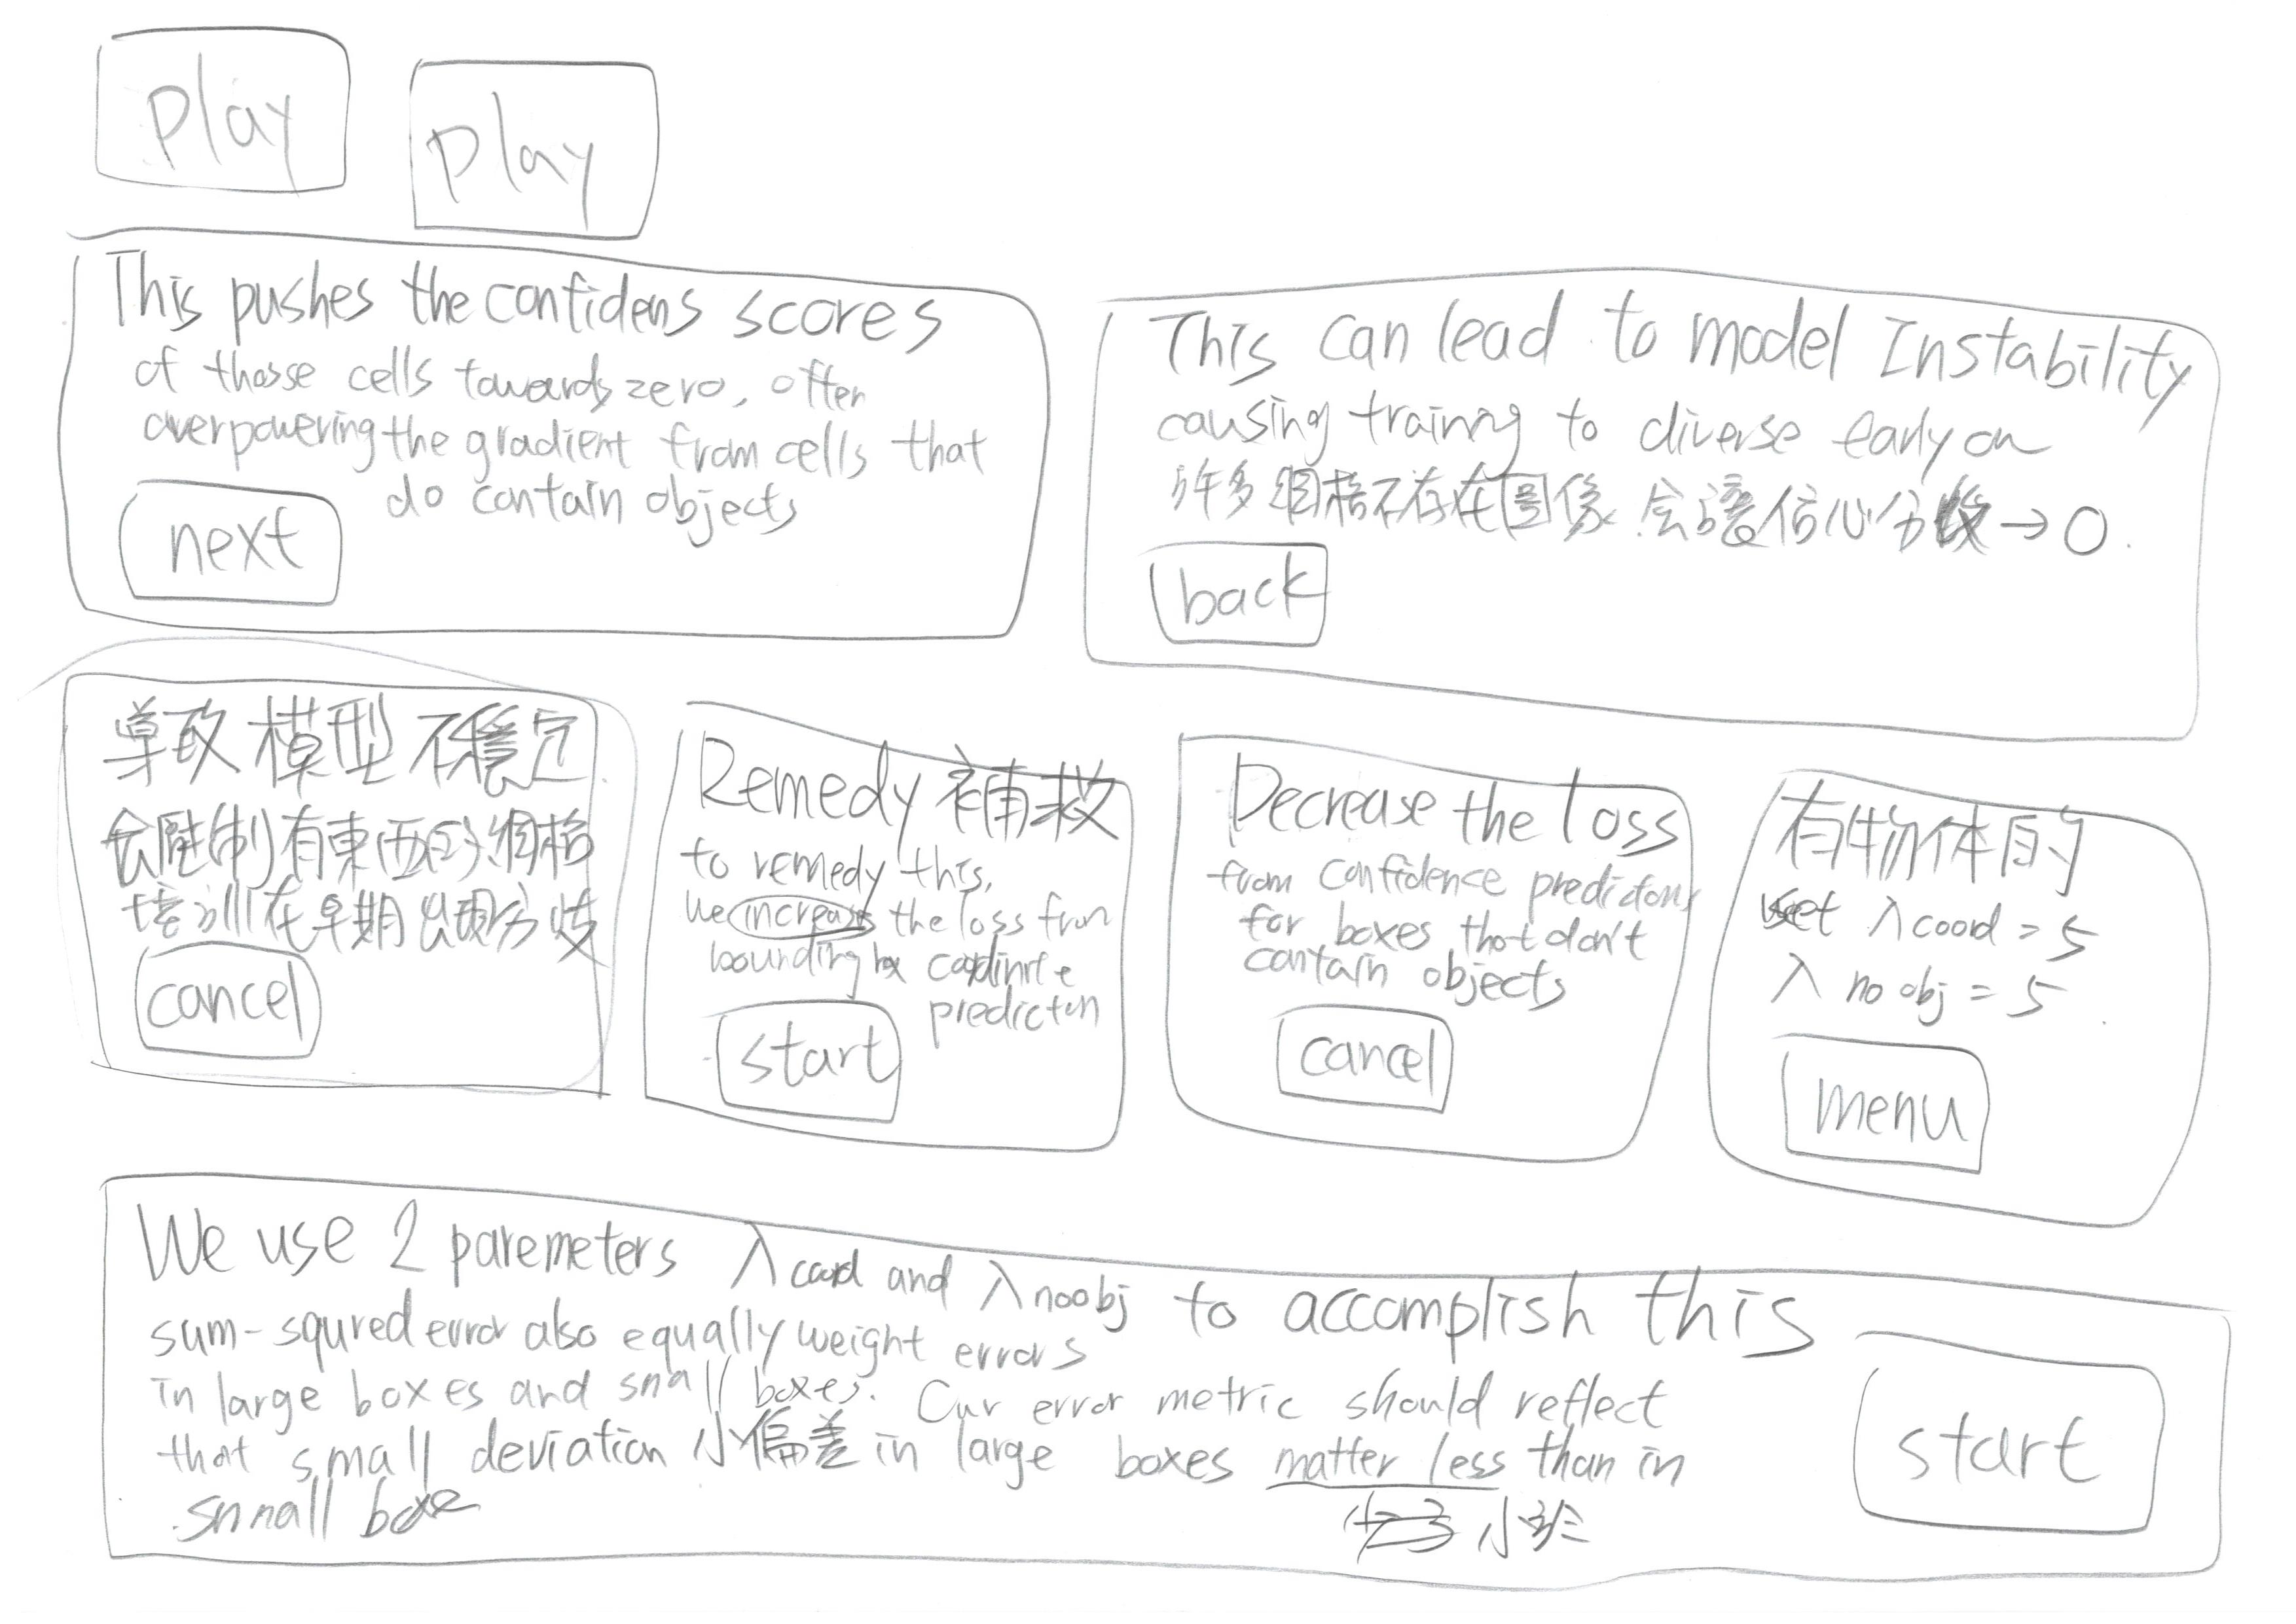 play
play
This pushes the confidens scores
of thosse cells towards zero, often
overpowering the gradient from cells that
do contain objects
next
This can lead to model Instability
causing training to diverse early on
許多網格不存在圖像 会讓信心分数→0.
back
導致模型不穩定
会壓制有東西的網格
培訓在早期出現分歧
cancel
Remedy 補救
to remedy this,
we increases the loss from
bounding box coordinate
prediction
start
Decrease the loss
from confidence predictions
for boxes that don't
contain objects
cancel
有物体的
set λ coord = 5
λ no obj = 5
menu
We use 2 paremeters λ coord and λ noobj to accomplish this
sum-squred error also equally weight errors
in large boxes and small boxes. Our error metric should reflect
that small deviation 小偏差 in large boxes matter less than in
snnall boxe
start